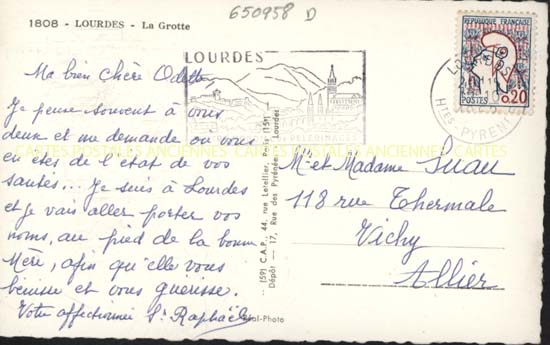 650958 D
1808 - LOURDES - La Grotte
LOURDES
REPUBLIQUE FRANÇAISE
POSTES 0,20
Htes PYRENEES
Ma bien chère Odette,
Je pense souvent à vous
deux et me demande où vous
en êtes de l'état de vos
santés... Je suis à Lourdes
et je vais aller porter vos
noms, au pied de la bonne
Mère, afin qu'elle vous
bénisse et vous guérisse.
Votre affectionnée Sr Raphaël
CARTES POSTALES ANCIENNES CARTES POSTALES ANCIENNES CARTES
(59) C.A.P., 44, rue Letellier, Paris (15e)
Dépôt — 17, Rue des Pyrénées, Lourdes
Réal-Photo
Mr et Madame Juau
118 rue Thermale
Vichy
Allier